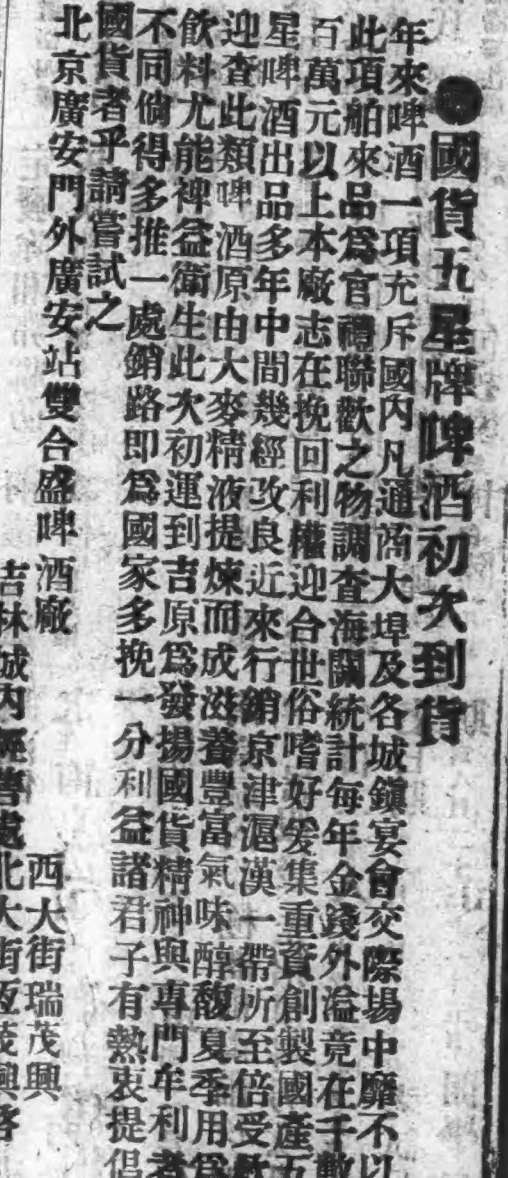 ●國貨五星牌啤酒初次到貨
年來啤酒一項充斥國內凡通商大埠及各城鎮宴會交際場中靡不以
此項舶來品爲官禮聯歡之物調查海關統計每年金錢外溢竟在千數
百萬元以上本廠志在挽回利權迎合世俗嗜好爰集重資創製國產五
星啤酒出品多年中間幾經改良近來行銷京津滬漢一帶所至倍受歡
迎查此類啤酒原由大麥精液提煉而成滋養豐富氣味醇馥夏季用爲
飲料尤能裨益衛生此次初運到吉原爲發揚國貨精神與專門牟利者
不同倘得多推一處銷路即爲國家多挽一分利益諸君子有熱衷提倡
國貨者乎請嘗試之
北京廣安門外廣安站雙合盛啤酒廠
西大街瑞茂興
吉林城內經售處北大街恆茂興啓